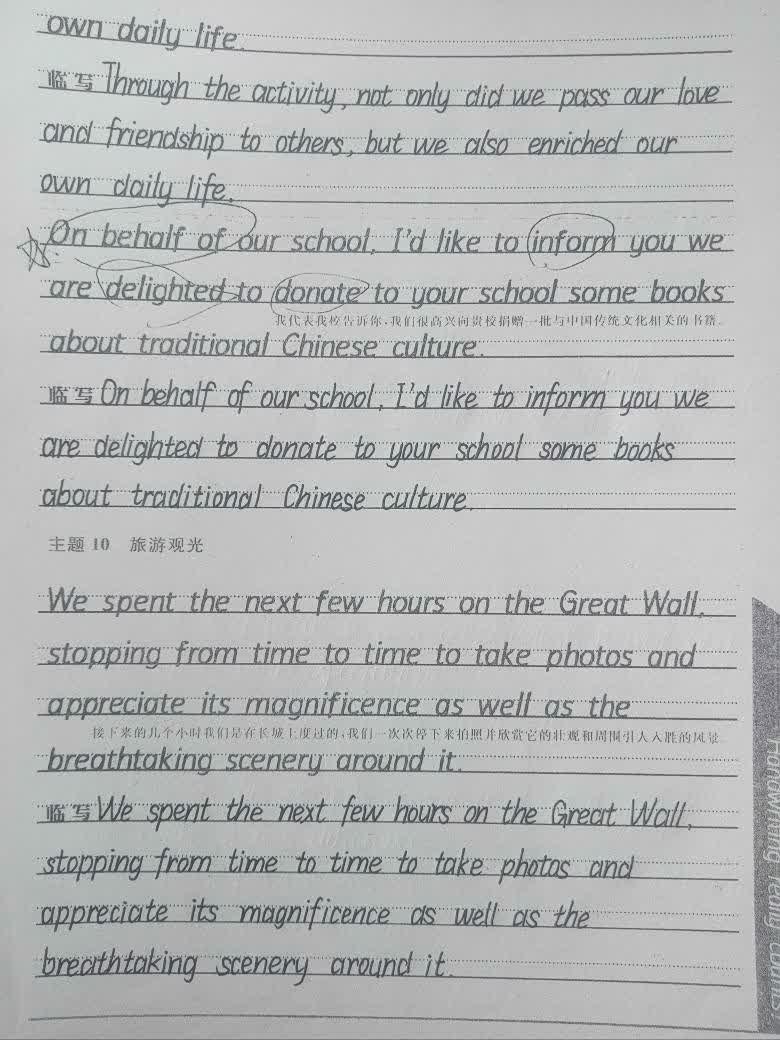 own daily life.
临写 Through the activity, not only did we pass our love
and friendship to others, but we also enriched our
own daily life.
On behalf of our school, I'd like to inform you we
are delighted to donate to your school some books
我代表我校告诉你,我们很高兴向贵校捐赠一批与中国传统文化相关的书籍.
about traditional Chinese culture.
临写 On behalf of our school, I'd like to inform you we
are delighted to donate to your school some books
about traditional Chinese culture.
主题 10 旅游观光
We spent the next few hours on the Great Wall,
stopping from time to time to take photos and
appreciate its magnificence as well as the
接下来的几个小时我们是在长城上度过的,我们一次次停下来拍照并欣赏它的壮观和周围引人入胜的风景.
breathtaking scenery around it.
临写 We spent the next few hours on the Great Wall,
stopping from time to time to take photos and
appreciate its magnificence as well as the
breathtaking scenery around it.